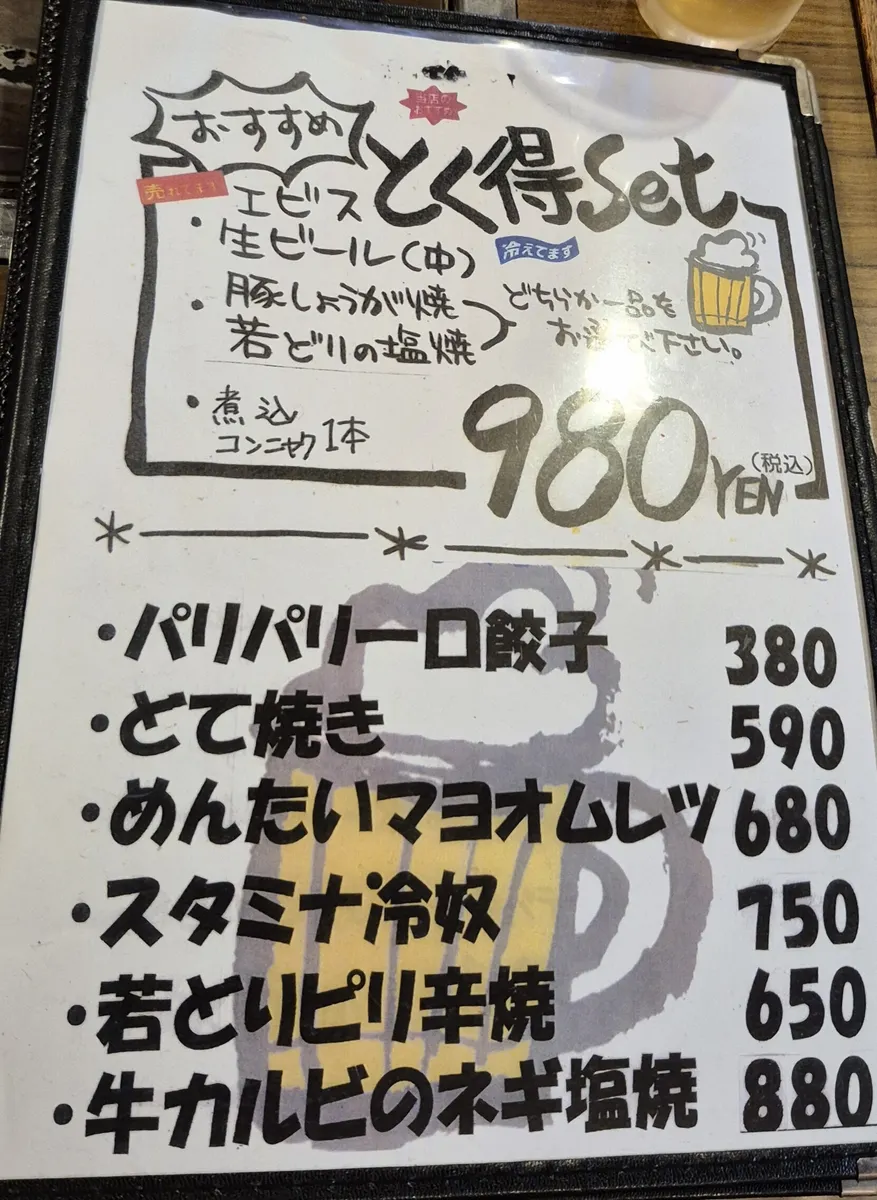 当店の
おすすめ
おすすめ
とく得Set
売れてます
・エビス
生ビール(中)
冷えてます
・豚しょうが焼
若どりの塩焼
どちらか一品を
お選び下さい。
・煮込
コンニャク1本
980YEN
(税込)
・パリパリ一口餃子 380
・どて焼き 590
・めんたいマヨオムレツ 680
・スタミナ冷奴 750
・若とりピリ辛焼 650
・牛カルビのネギ塩焼 880